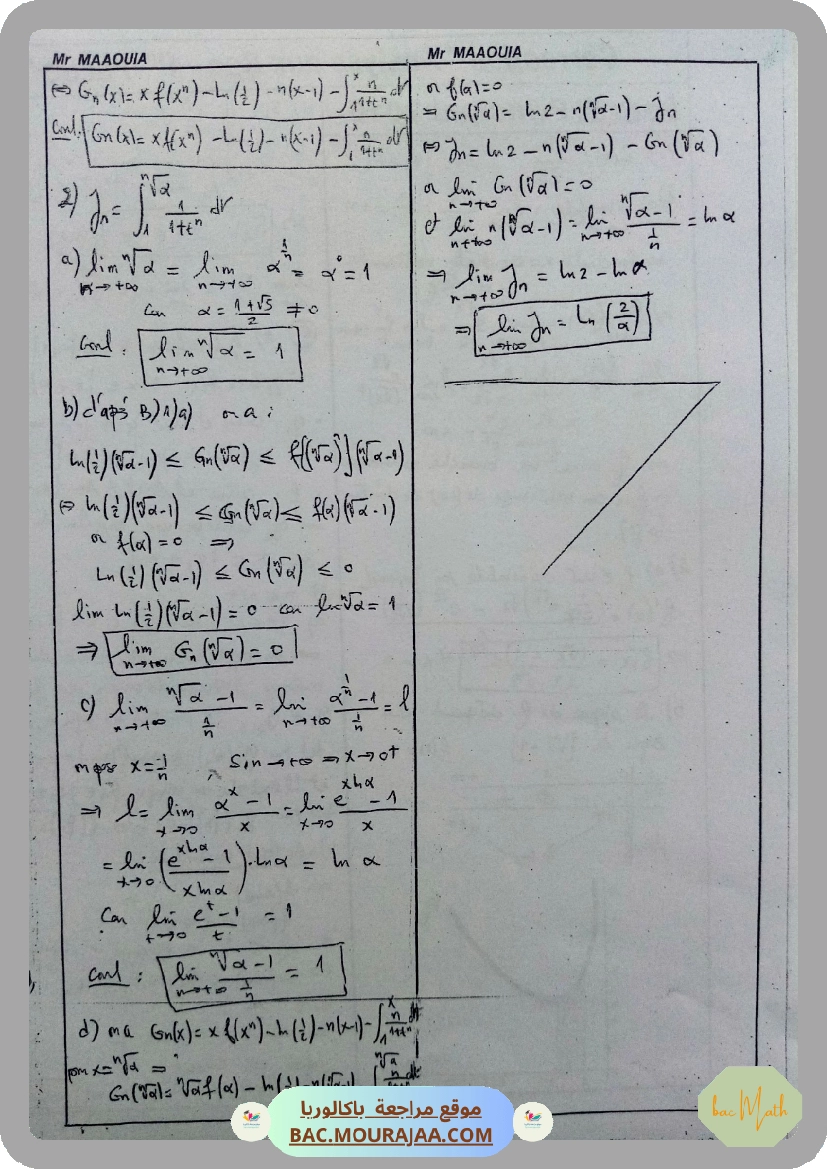 Mr MAAOUIA
⇔ Gn(x) = x f(xⁿ) - Ln(1/2) - n(x-1) - ∫₁ˣ n/(1+tⁿ) dt
Concl: Gn(x) = x f(xⁿ) - Ln(1/2) - n(x-1) - ∫₁ˣ n/(1+tⁿ) dt
2) Jn = ∫₁^(ⁿ√α) 1/(1+tⁿ) dt
a) lim ⁿ√α = lim α^(1/n) = α° = 1
n→+∞ n→+∞
Car α = (1+√5)/2 ≠ 0
Concl : lim ⁿ√α = 1
n→+∞
b) d'après B) 1) a) on a :
ln(1/2)(ⁿ√α-1) ≤ Gn(ⁿ√α) ≤ f[(ⁿ√α)ⁿ](ⁿ√α-1)
⇔ ln(1/2)(ⁿ√α-1) ≤ Gn(ⁿ√α) ≤ f(α)(ⁿ√α-1)
or f(α) = 0 ⇒
Ln(1/2)(ⁿ√α-1) ≤ Gn(ⁿ√α) ≤ 0
lim Ln(1/2)(ⁿ√α-1) = 0 car lim ⁿ√α = 1
⇒ lim Gn(ⁿ√α) = 0
n→+∞
c) lim (ⁿ√α - 1)/(1/n) = lim (α^(1/n) - 1)/(1/n) = l
n→+∞ n→+∞
on pose x = 1/n , Si n→+∞ ⇒ x→0⁺
⇒ l = lim (αˣ - 1)/x = lim (e^(x ln α) - 1)/x
x→0 x→0
= lim ((e^(x ln α) - 1)/(x ln α)) . ln α = ln α
x→0
Car lim (eᵗ - 1)/t = 1
t→0
Concl : lim (ⁿ√α - 1)/(1/n) = 1
n→+∞
d) on a Gn(x) = x f(xⁿ) - ln(1/2) - n(x-1) - ∫₁ˣ n/(1+tⁿ) dt
pour x = ⁿ√α ⇒
Gn(ⁿ√α) = ⁿ√α f(α) - ln(1/2) - n(ⁿ√α-1)
Mr MAAOUIA
or f(α) = 0
⇒ Gn(ⁿ√α) = ln 2 - n(ⁿ√α-1) - Jn
⇔ Jn = ln 2 - n(ⁿ√α-1) - Gn(ⁿ√α)
or lim Gn(ⁿ√α) = 0
n→+∞
et lim n(ⁿ√α-1) = lim (ⁿ√α-1)/(1/n) = ln α
n→+∞ n→+∞
⇒ lim Jn = ln 2 - ln α
n→+∞
⇒ lim Jn = Ln(2/α)
n→+∞
موقع مراجعة باكالوريا
BAC.MOURAJAA.COM
bac Math